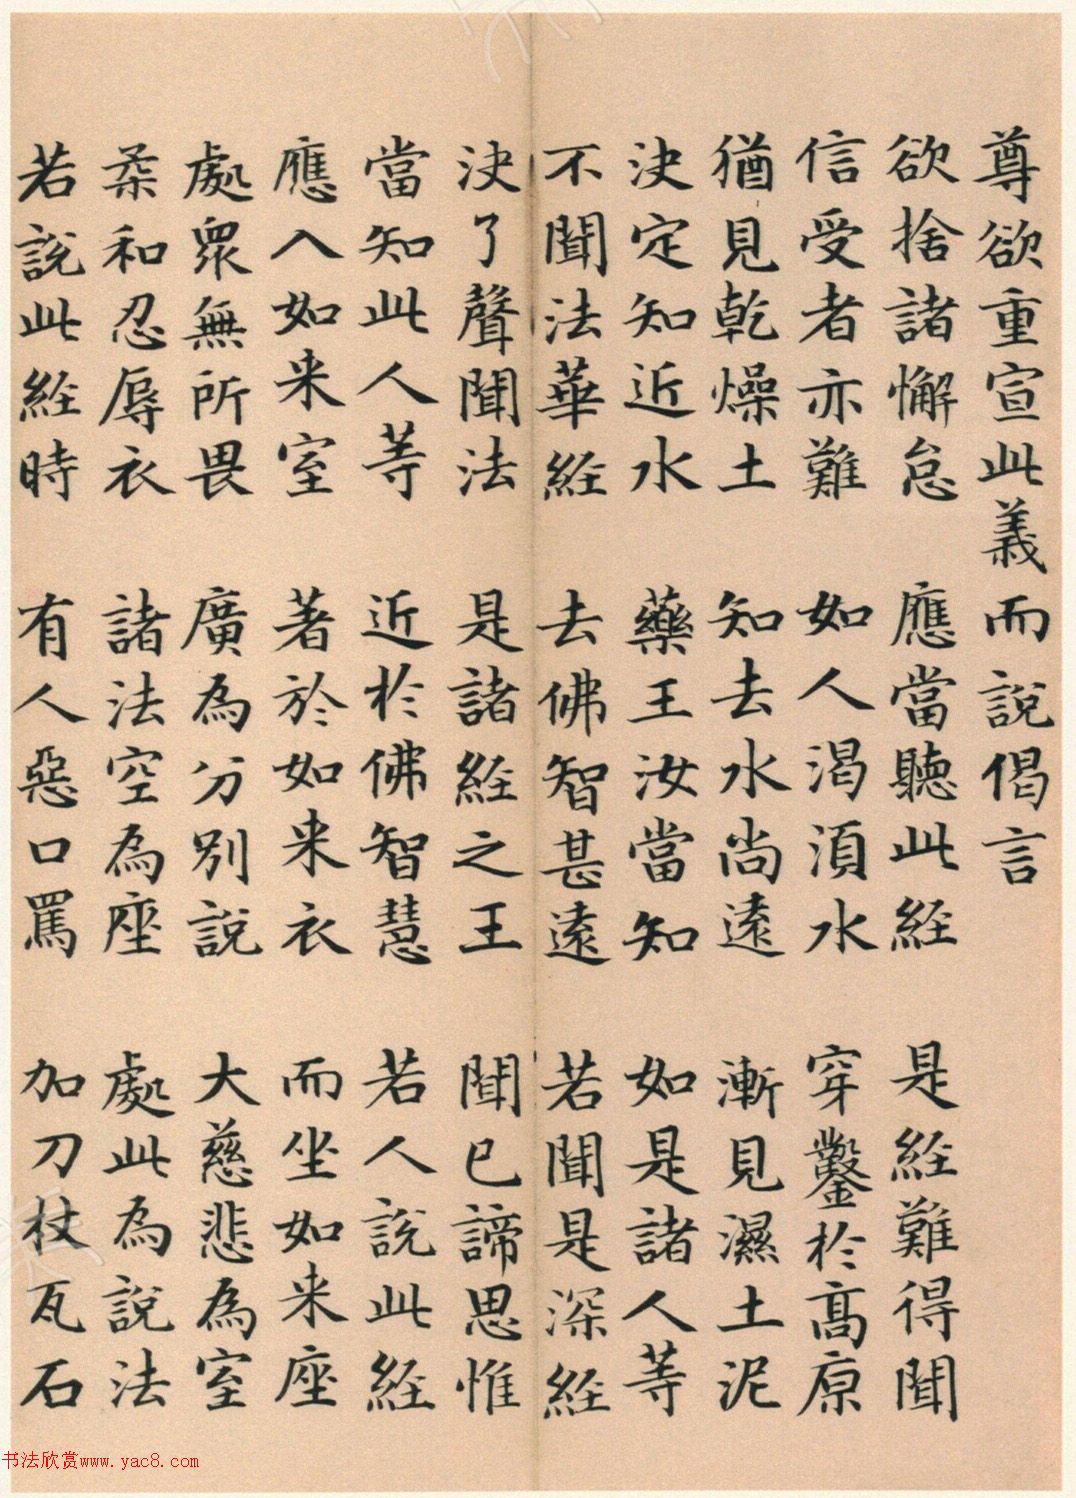 尊欲重宣此義而說偈言
欲捨諸懈怠 應當聽此經 是經難得聞
信受者亦難 如人渴須水 穿鑿於高原
猶見乾燥土 知去水尚遠 漸見濕土泥
決定知近水 藥王汝當知 如是諸人等
不聞法華經 去佛智甚遠 若聞是深經
決了聲聞法 是諸經之王 聞已諦思惟
當知此人等 近於佛智慧 若人說此經
應入如来室 著於如来衣 而坐如来座
處眾無所畏 廣為分別說 大慈悲為室
柔和忍辱衣 諸法空為座 處此為說法
若說此經時 有人惡口罵 加刀杖瓦石
书法欣赏www.yac8.com